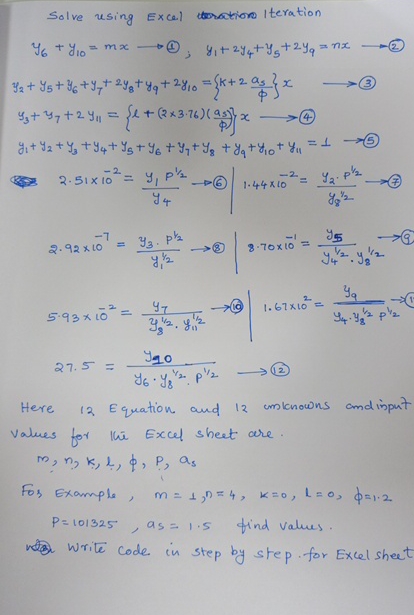 Solve using Excel Iteration
y₆ + y₁₀ = mx → ①, y₁ + 2y₄ + y₅ + 2y₉ = nx → ②
y₂ + y₅ + y₆ + y₇ + 2y₈ + y₉ + 2y₁₀ = {k + 2 aₛ/ϕ} x → ③
y₃ + y₇ + 2y₁₁ = {l + (2×3.76)(aₛ/ϕ)} x → ④
y₁ + y₂ + y₃ + y₄ + y₅ + y₆ + y₇ + y₈ + y₉ + y₁₀ + y₁₁ = 1 → ⑤
2.51×10⁻² = y₁ P^½ / y₄ → ⑥ | 1.44×10⁻² = y₂ · P^½ / y₈^½ → ⑦
2.92×10⁻⁷ = y₃ · P^½ / y₁^½ → ⑧ | 8.70×10⁻¹ = y₅ / y₄^½ · y₈^½ → ⑨
5.93×10⁻² = y₇ / y₈^½ · y₁₁^½ → ⑩ | 1.67×10² = y₉ / y₄ · y₈^½ P^½ →
27.5 = y₁₀ / y₆ · y₈^½ · P^½ → ⑫
Here 12 Equation and 12 unknowns and input
values for the Excel sheet are.
m, n, k, l, ϕ, P, aₛ
For Example, m = 1, n = 4, k = 0, l = 0, ϕ = 1.2
P = 101325, aₛ = 1.5 find values.
Write code in step by step. for Excel sheet